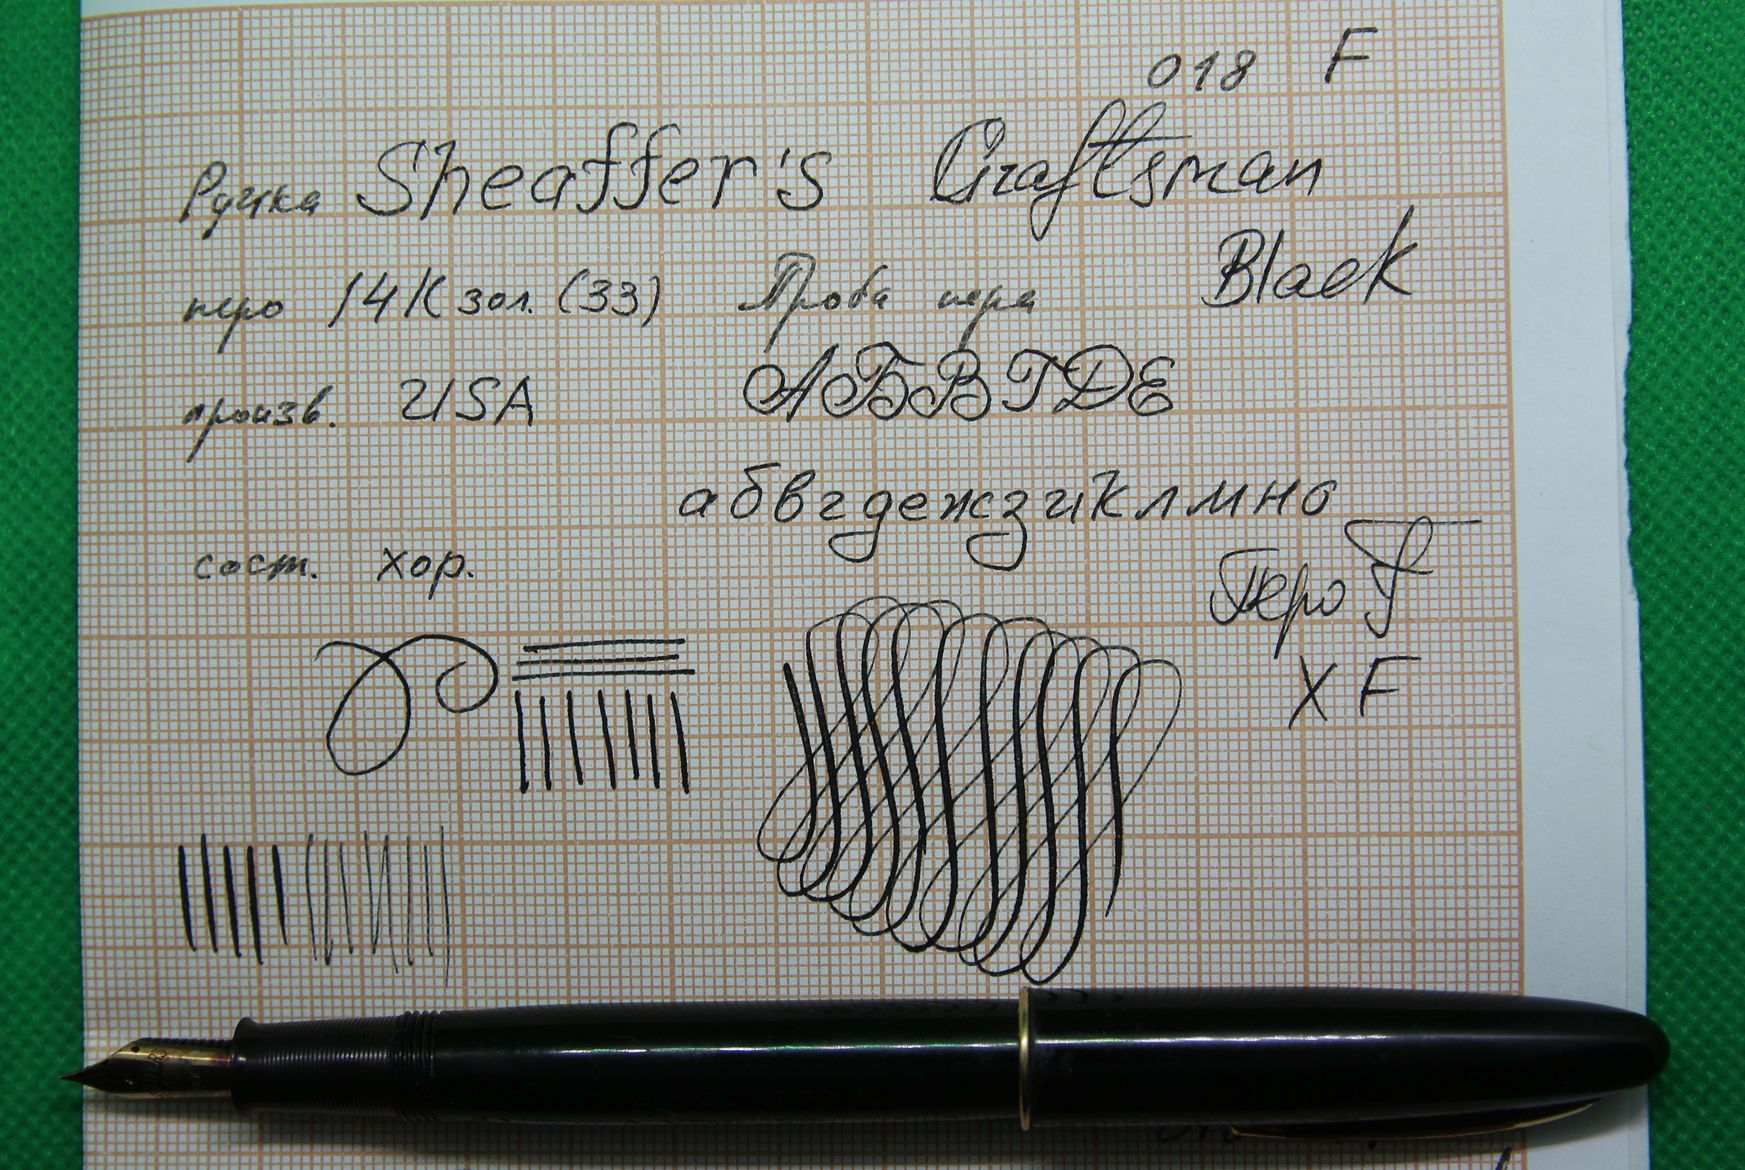 018 F
Ручка Sheaffer's Craftsman
Black
перо 14К зол. (33) Проба пера
произв. USA АБВГДЕ
абвгдежзиклмно
сост. хор.
Перо F
XF